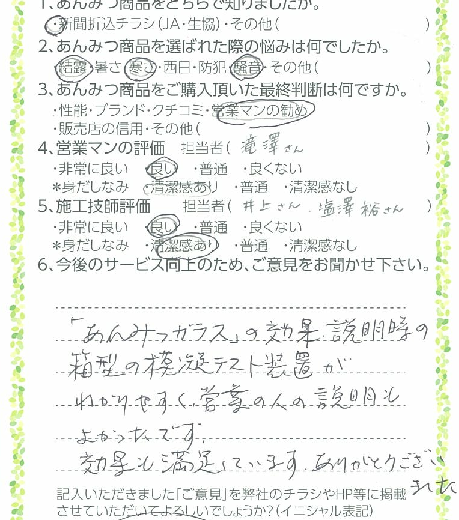 1.あんみつ商品をどちらで知りましたか。
・新聞折込チラシ(JA・生協)・その他( )
2.あんみつ商品を選ばれた際の悩みは何でしたか。
・結露・暑さ・寒さ・西日・防犯・騒音・その他( )
3.あんみつ商品をご購入頂いた最終判断は何ですか。
・性能・ブランド・クチコミ・営業マンの勧め
・販売店の信用・その他( )
4.営業マンの評価 担当者( 滝澤さん )
・非常に良い ・良い ・普通 ・良くない
*身だしなみ ・清潔感あり ・普通 ・清潔感なし
5.施工技師評価 担当者( 井上さん、塩澤裕さん )
・非常に良い ・良い ・普通 ・良くない
*身だしなみ ・清潔感あり ・普通 ・清潔感なし
6.今後のサービス向上のため、ご意見をお聞かせ下さい。
「あんみつガラス」の効果説明時の
箱型の模擬テスト装置が
わかりやすく、営業の人の説明も
よかったです。
効果も満足しています。ありがとうござい
ました
記入いただきました「ご意見」を弊社のチラシやHP等に掲載
させていただいてよろしいでしょうか?(イニシャル表記)